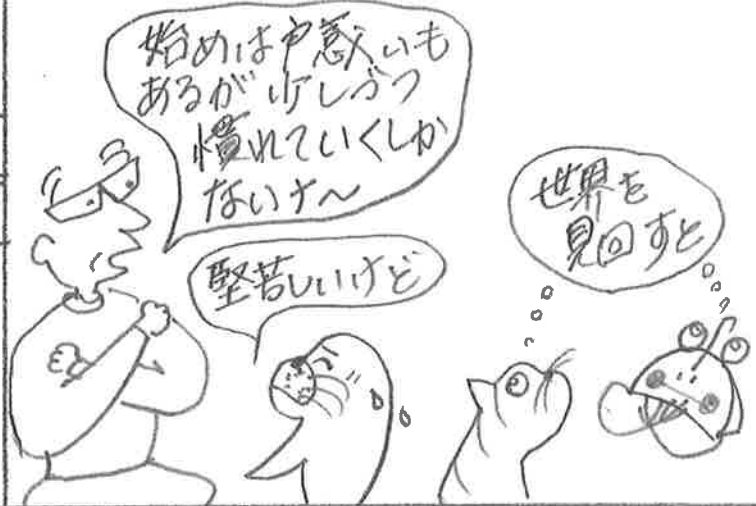 始めは戸惑いも
あるが少しづつ
慣れていくしか
ないナ～
堅苦しいけど
世界を
見回すと